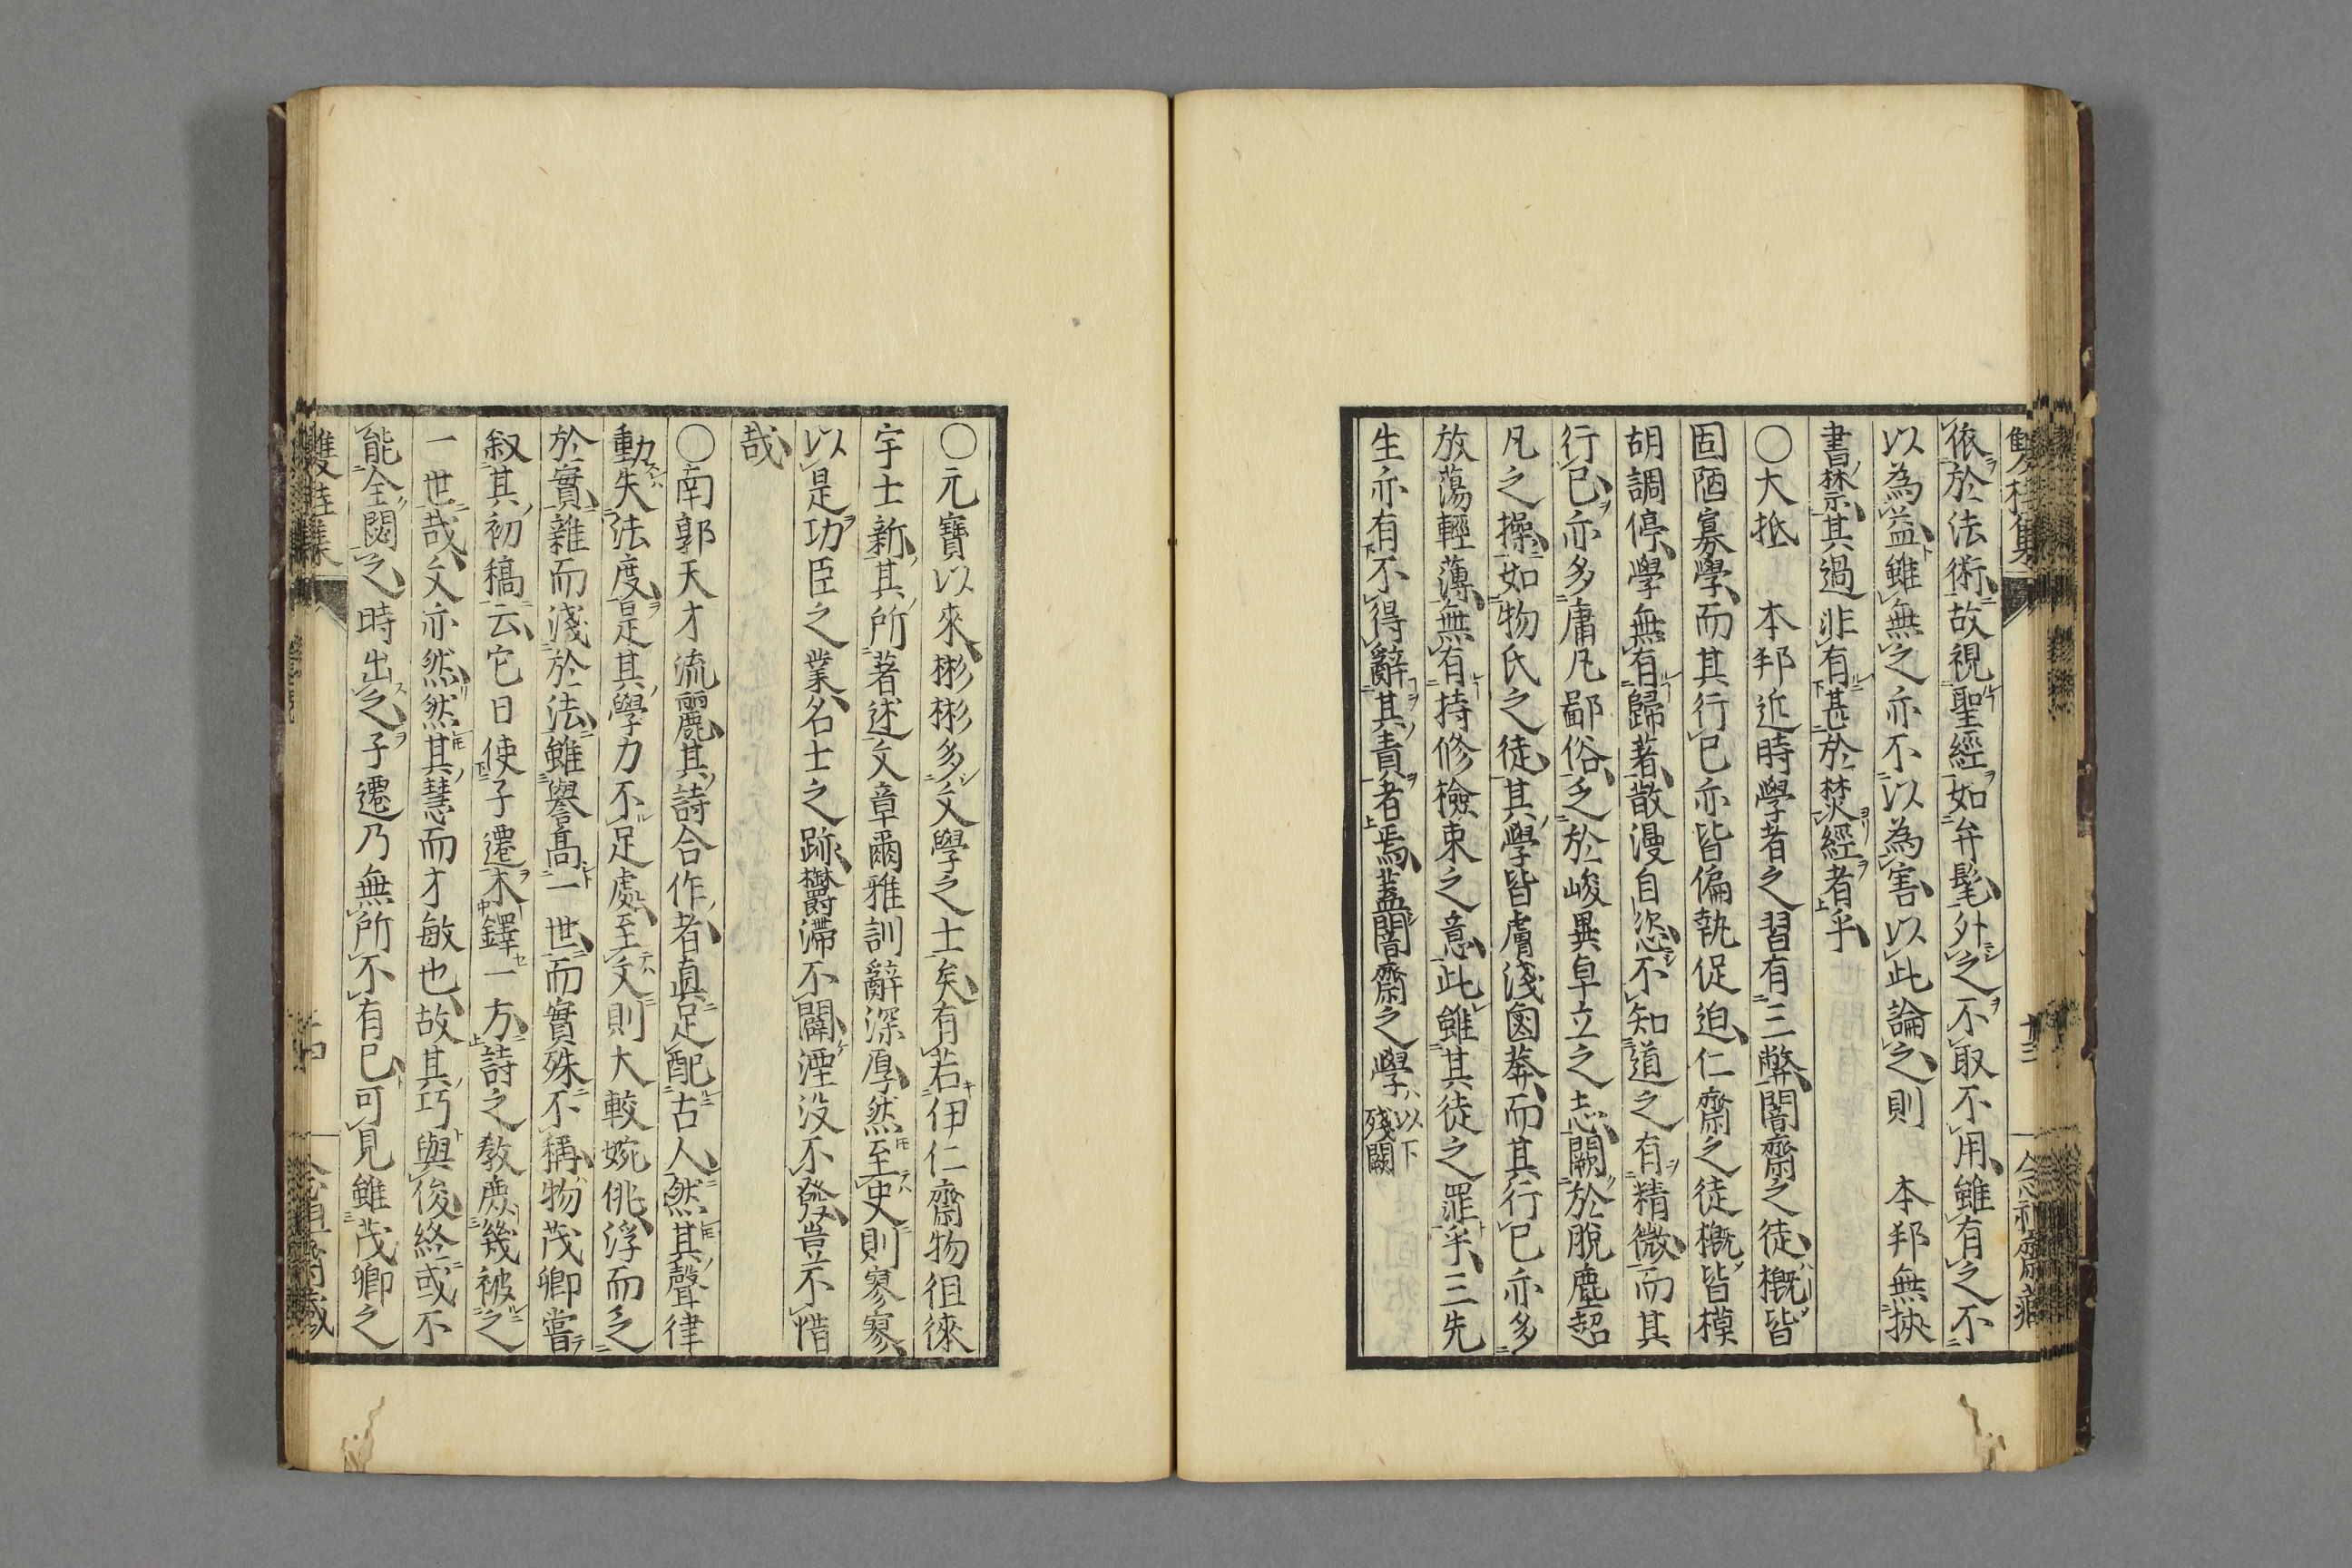 依於法術故視聖經如弁髦外之不取不用雖有之不
以為益雖無之亦不以為害以此論之則　本邦無挾
書禁其過非有甚於焚經者乎
○大抵　本邦近時學者之習有三弊闇齋之徒概皆
固陋寡學而其行已亦皆偏執促迫仁齋之徒概皆模
胡調停學無有歸著散漫自恣不知道之有精微而其
行已亦多庸凡鄙俗乏於峻異卓立之志闕於脫塵超
凡之操如物氏之徒其學皆膚淺鹵莽而其行已亦多
放蕩輕薄無有持修檢束之意此雖其徒之罪乎三先
生亦有不得辭其責者焉蓋闇齋之學以下殘闕
○元寶以來彬彬多文學之士矣有若伊仁齋物徂徠
宇士新其所著述文章爾雅訓辭深厚然至史則寥寥
以是功臣之業名士之跡欝滯不闢湮沒不發豈不惜
哉
○南郭天才流麗其詩合作者真足配古人然其聲律
動失法度是其學力不足處至文則大較婉佻浮而乏
於實雜而淺於法雖譽高一世而實殊不稱物茂卿嘗
叙其初稿云它日使子遷木鐸一方詩之教庶幾被之
一世哉文亦然然其慧而才敏也故其巧與俊終或不
能全閟之時出之子遷乃無所不有已可見雖茂卿之
雙桂集